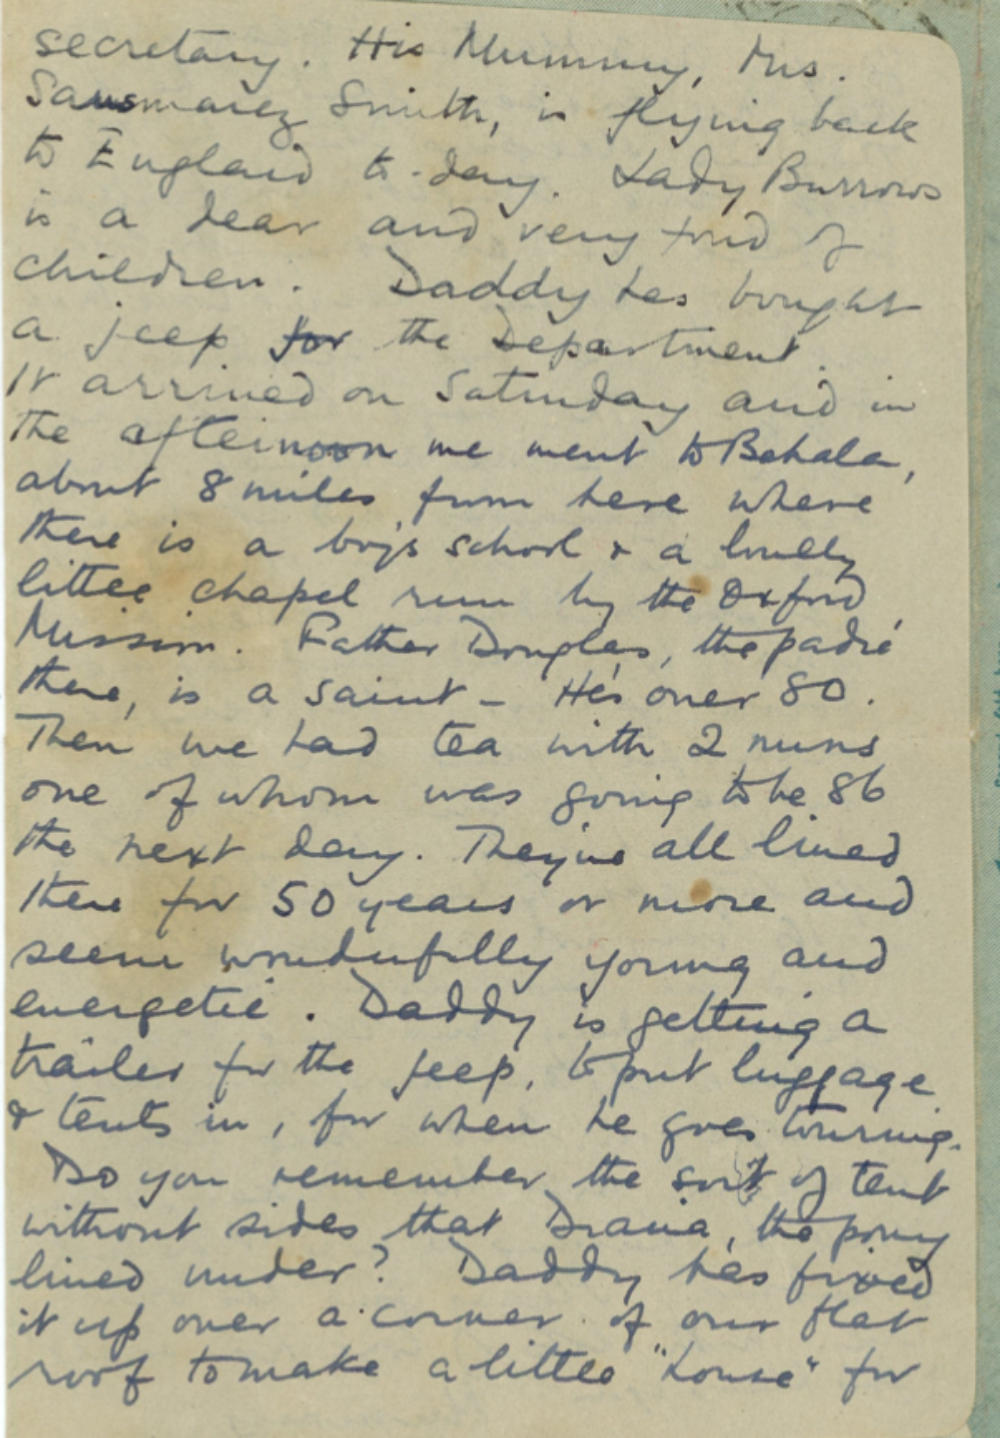 secretary. His Mummy, Mrs.
Sausmarez Smith, is flying back
to England to-day. Lady Burrows
is a dear and very fond of
children. Daddy has bought
a jeep for the Department.
It arrived on Saturday and in
the afternoon we went to Behala,
about 8 miles from here where
there is a boy's school & a lovely
little chapel run by the Oxford
Mission. Father Douglas, the padre
there, is a saint - He's over 80.
Then we had tea with 2 nuns
one of whom was going to be 86
the next day. They've all lived
there for 50 years or more and
seem wonderfully young and
energetic. Daddy is getting a
trailer for the jeep, to put luggage
& tents in, for when he goes touring.
Do you remember the sort of tent
without sides that Diana, the pony
lived under? Daddy has fixed
it up over a corner of our flat
roof to make a little "house" for